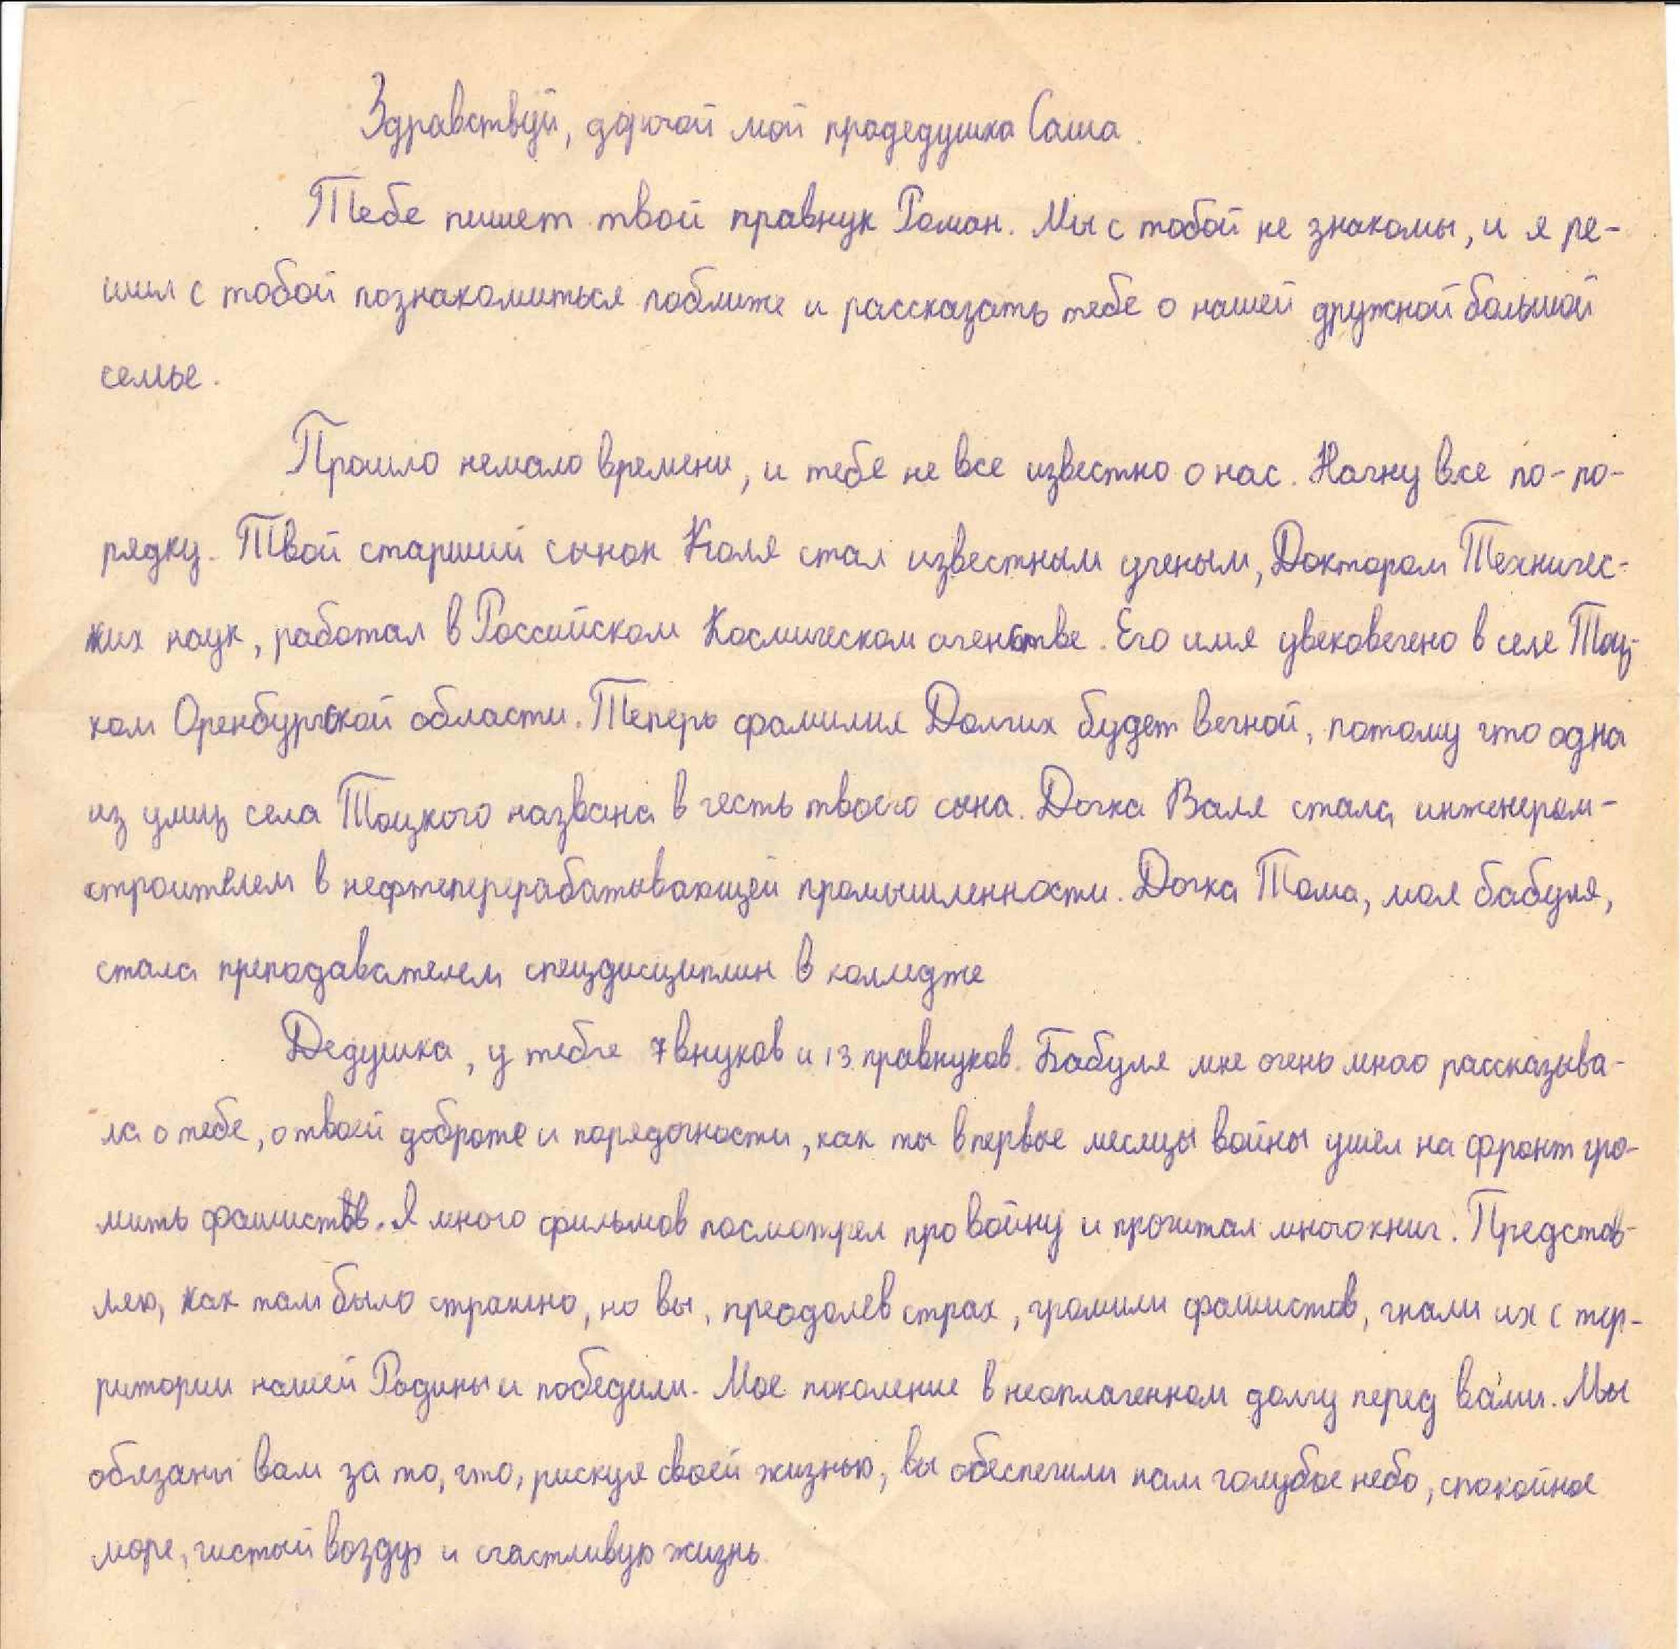 Здравствуй, дорогой мой прадедушка Саша.
Тебе пишет твой правнук Роман. Мы с тобой не знакомы, и я ре-
шил с тобой познакомиться поближе и рассказать тебе о нашей дружной большой
семье.
Прошло немало времени, и тебе не все известно о нас. Начну все по-по-
рядку. Твой старший сынок Коля стал известным ученым, Доктором Техничес-
ких наук, работал в Российском Космическом агенстве. Его имя увековечено в селе Тоц-
ком Оренбургской области. Теперь фамилия Долгих будет вечной, потому что одна
из улиц села Тоцкого названа в честь твоего сына. Дочка Валя стала инженером-
строителем в нефтеперерабатывающей промышленности. Дочка Тома, моя бабуля,
стала преподавателем спецдисциплин в колледже
Дедушка, у тебя 7 внуков и 13 правнуков. Бабуля мне очень много рассказыва-
ла о тебе, о твоей доброте и порядочности, как ты в первые месяцы войны ушел на фронт гро-
мить фашистов. Я много фильмов посмотрел про войну и прочитал много книг. Представ-
ляю, как там было страшно, но вы, преодолев страх, громили фашистов, гнали их с тер-
ритории нашей Родины и победили. Мое поколение в неоплаченном долгу перед вами. Мы
обязаны вам за то, что, рискуя своей жизнью, вы обеспечили нам голубое небо, спокойное
море, чистый воздух и счастливую жизнь.